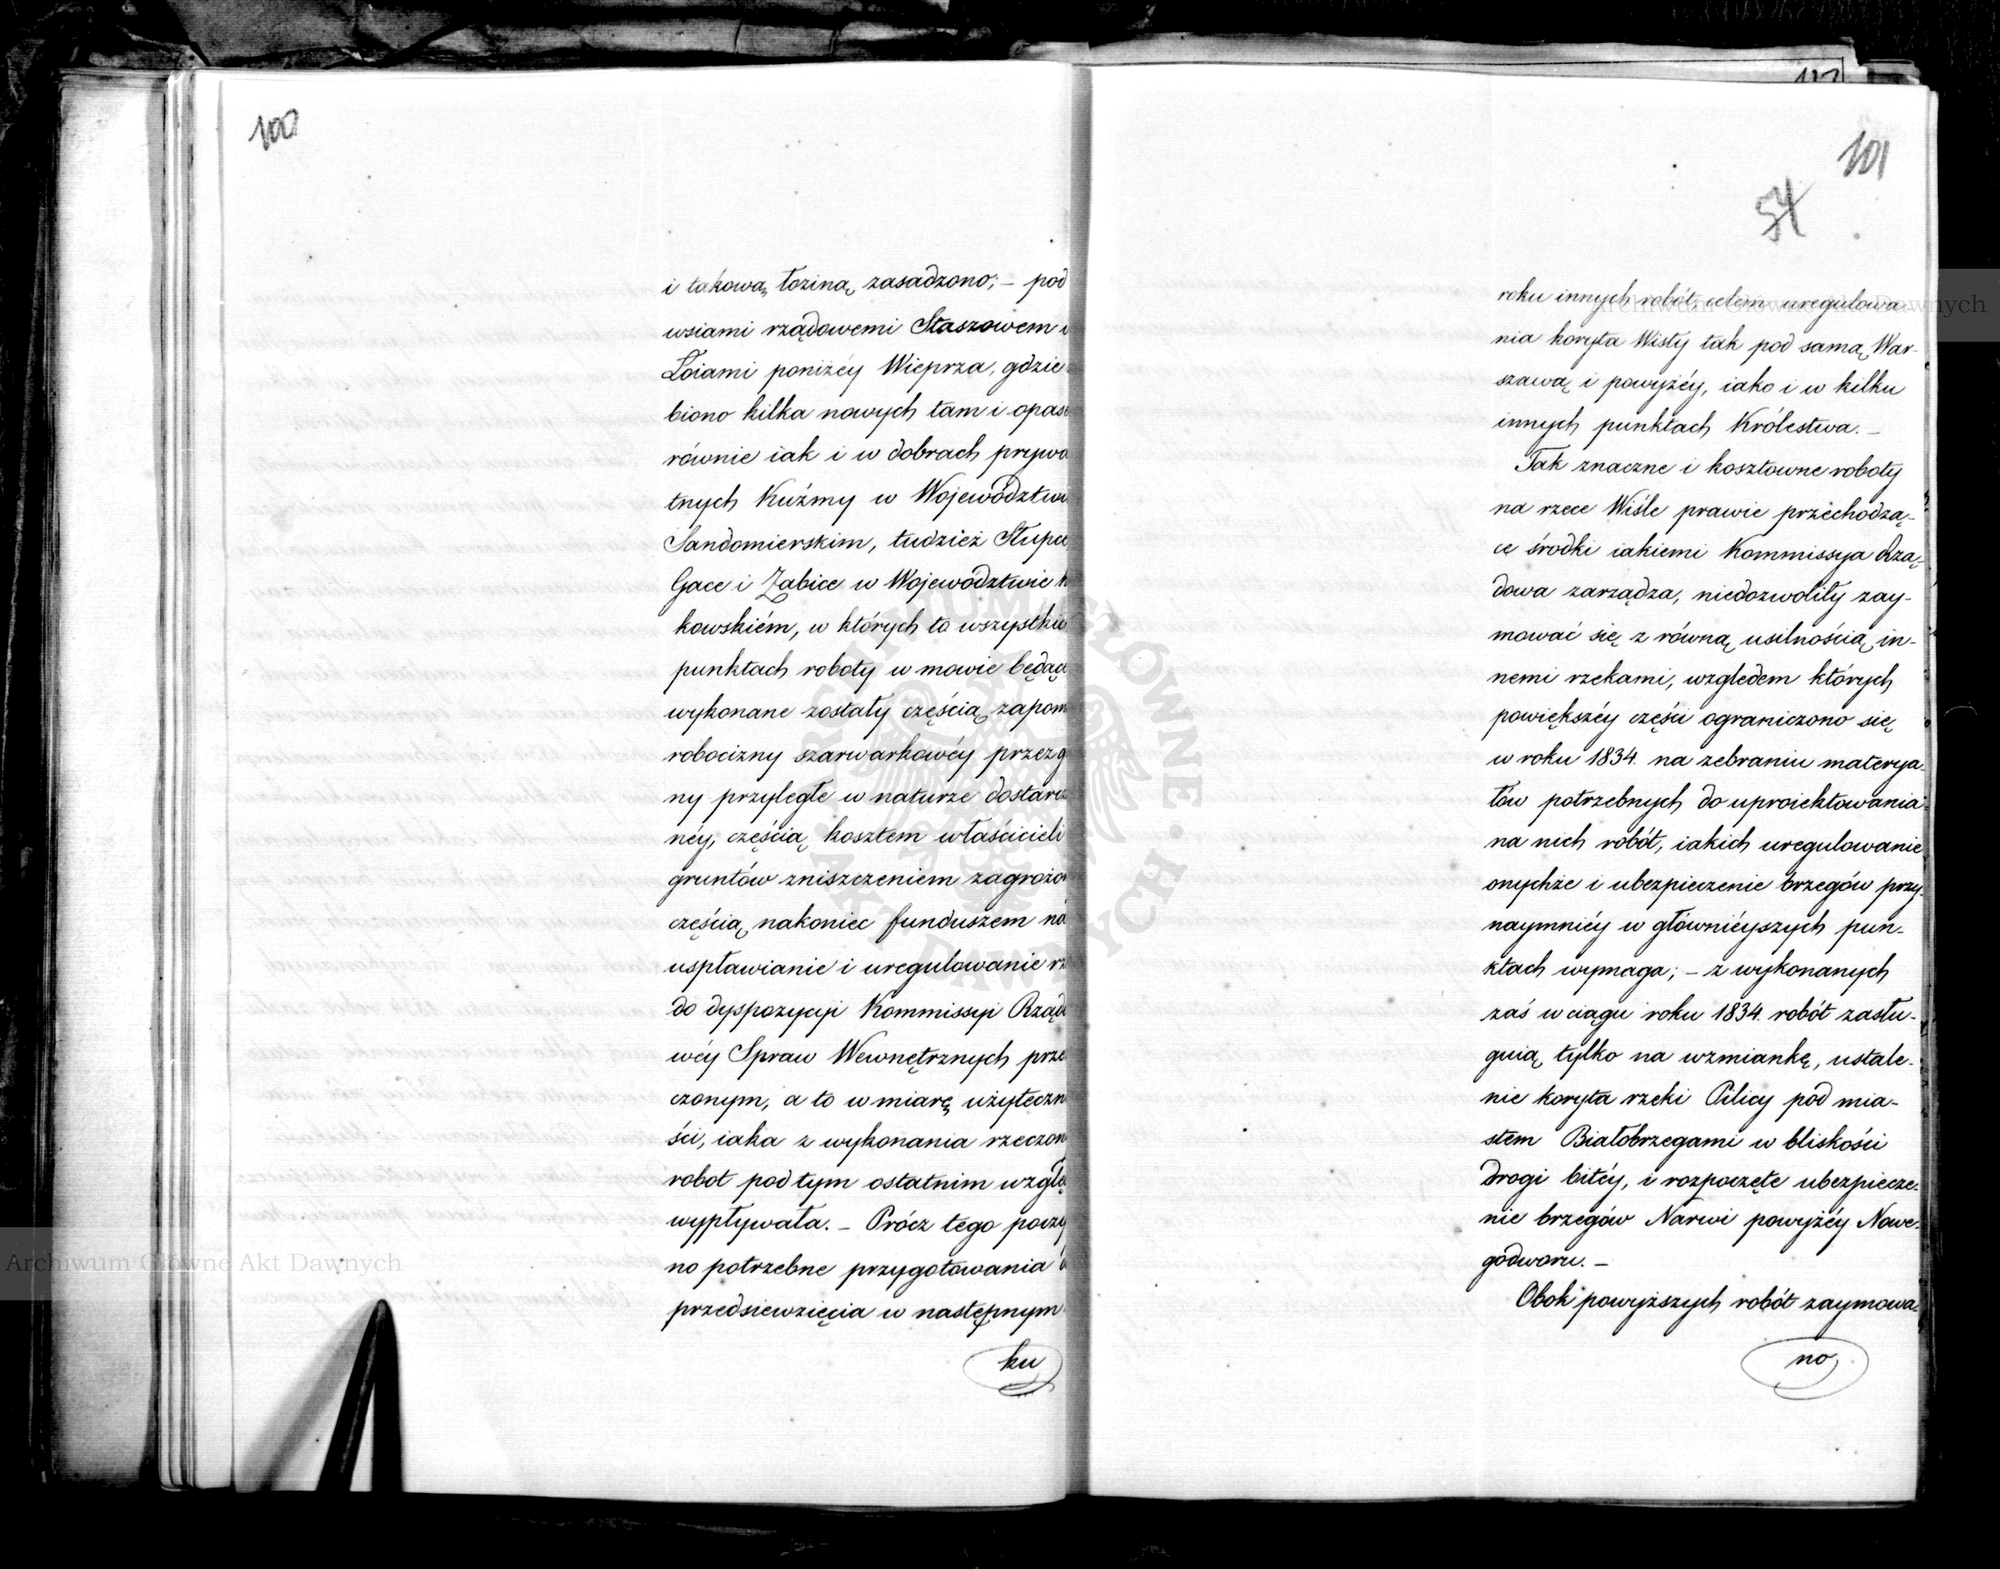 100
i takową łoziną zasadzono; – pod
wsiami rządowemi Staszowem i
Łoiami poniżéy Wieprza, gdzie
biono kilka nowych tam i opas
równie iak i w dobrach prywa
tnych Kuźmy w Województw
Sandomierskim, tudzież Słupa
Gace i Żabice w Województwie K
kowskiém, w których to wszystki
punktach roboty w mowie będąc
wykonane zostały częścią zapom
robocizny szarwarkowéy przez g
ny przyległe w naturze dostarcz
néy, częścią kosztem właścicieli
gruntów zniszczeniem zagrożo
częścią nakoniec funduszem na
uspławianie i uregulowanie rz
do dyspozycji Kommissyi Rządo
wéy Spraw Wewnętrznych prze
czonym, a to w miarę użyteczn
ści, iaka z wykonania rzeczon
robot pod tym ostatnim wzglę
wypływała. – Prócz tego poczy
no potrzebne przygotowania
przedsiewzięcia w następnym
ku
101
54
roku innych robót celem uregulowa-
nia koryta Wisły tak pod samą War-
szawą i powyżéy, iako i w kilku
innych punktach Królestwa. –
Tak znaczne i kosztowne roboty
na rzece Wiśle prawie przechodzą-
ce środki iakiemi Kommissya Rzą-
dowa zarządza, niedozwoliły zay-
mować się z równą usilnością in-
nemi rzekami, względem których
powiększéy części ograniczono się
w roku 1834. na zebraniu materya-
łów potrzebnych do uproiektowania
na nich robót, iakich uregulowanie
onychże i ubezpieczenie brzegów przy-
naymniéy w główniéyszych pun-
ktach wymaga; – z wykonanych
zaś w ciągu roku 1834. robót zasłu-
guią tylko na wzmiankę, ustale-
nie koryta rzeki Pilicy pod mia-
stem Białobrzegami w bliskości
drogi bitéy, i rozpoczęte ubezpiecze-
nie brzegów Narwi powyżéy Nowe-
godworu. –
Obok powyższych robót zaymowa-
no
Archiwum Główne Akt Dawnych
Archiwum Główne Akt Dawnych
ARCHIWUM GŁÓWNE AKT DAWNYCH